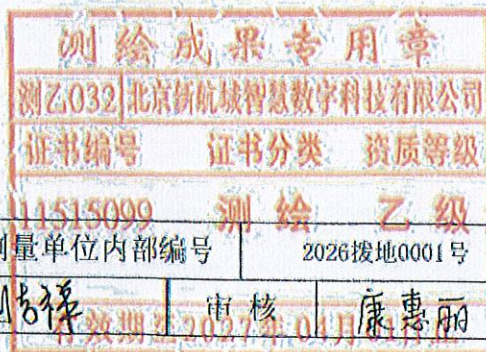 测绘成果专用章
测乙032 北京新航城智慧数字科技有限公司
证书编号 证书分类 资质等级
11515099 测绘 乙级
测量单位内部编号 2026拨地0001号
审核 康惠丽
有效期至2027年01月